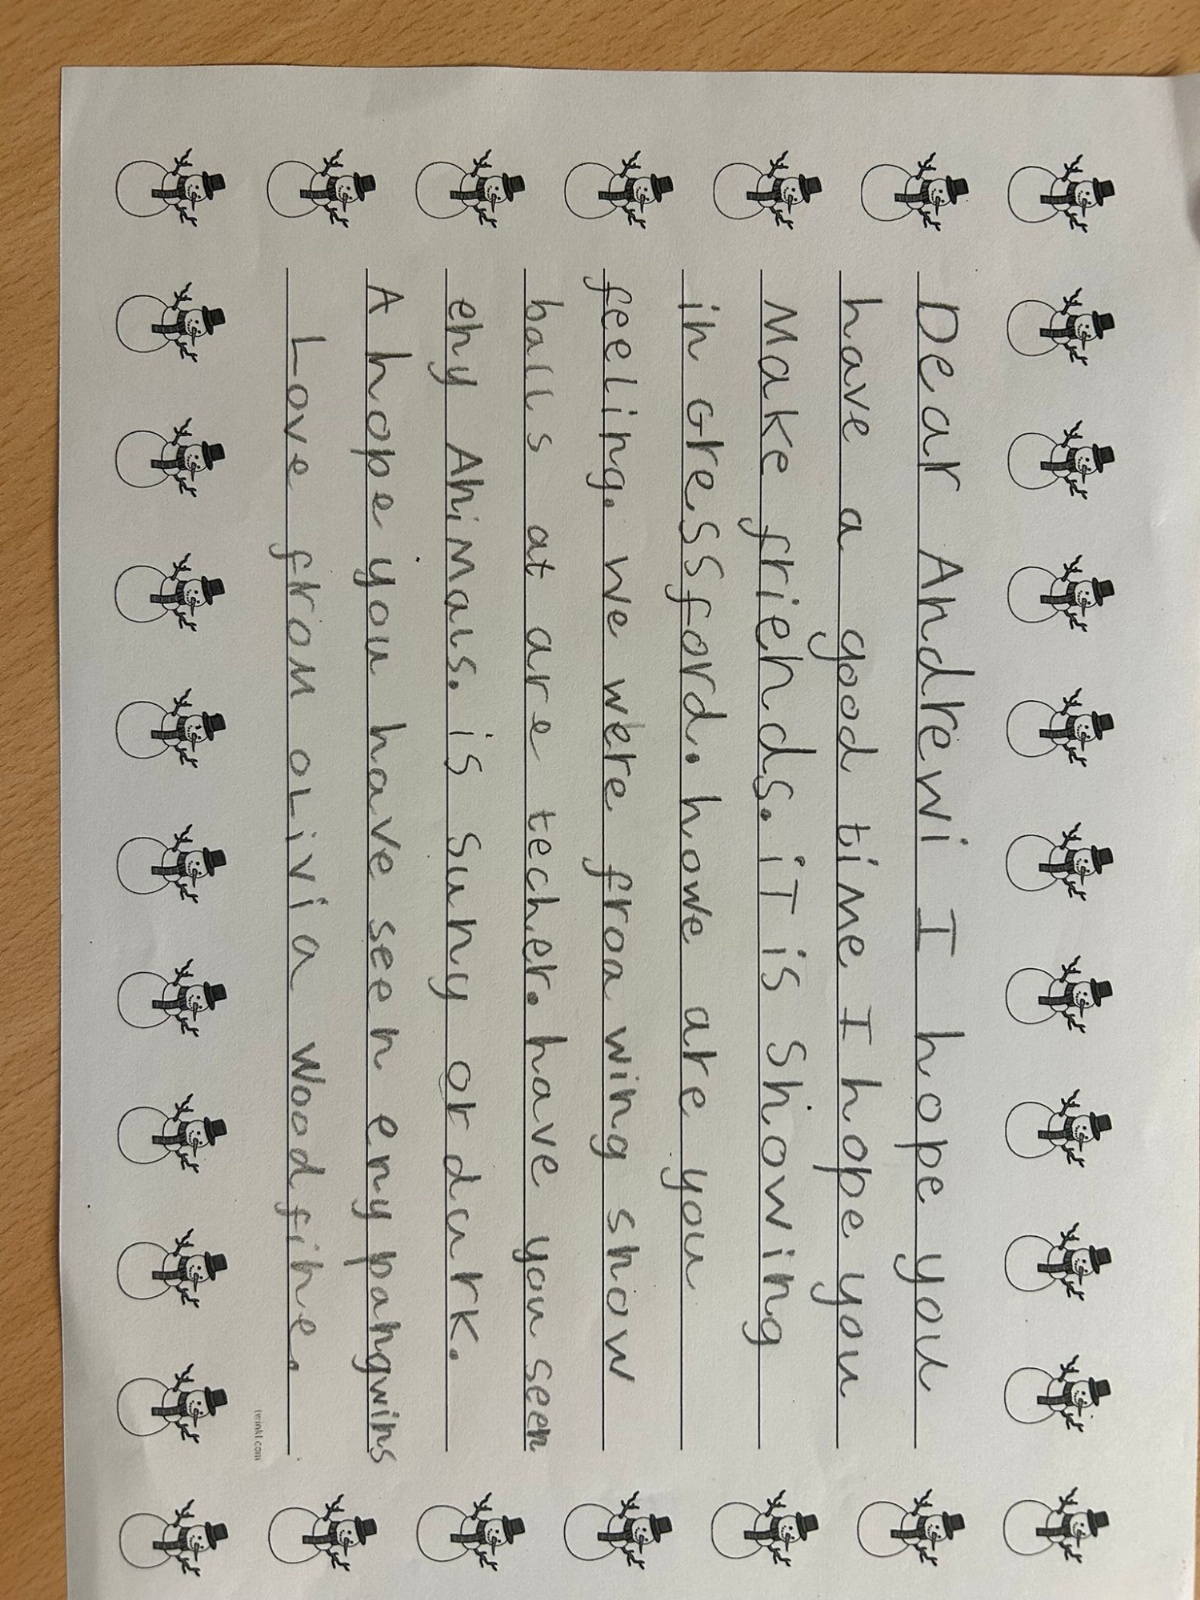 Dear Andrewi I hope you
have a good time I hope you
Make friends. iT is showing
in Gressford. howe are you
feeling. we were froa wing show
balls at are techer. have you seen
eny AniMals. is suny or durk.
A hope you have seen eny pangwins
Love from oLivia woodfine.
twinkl.com